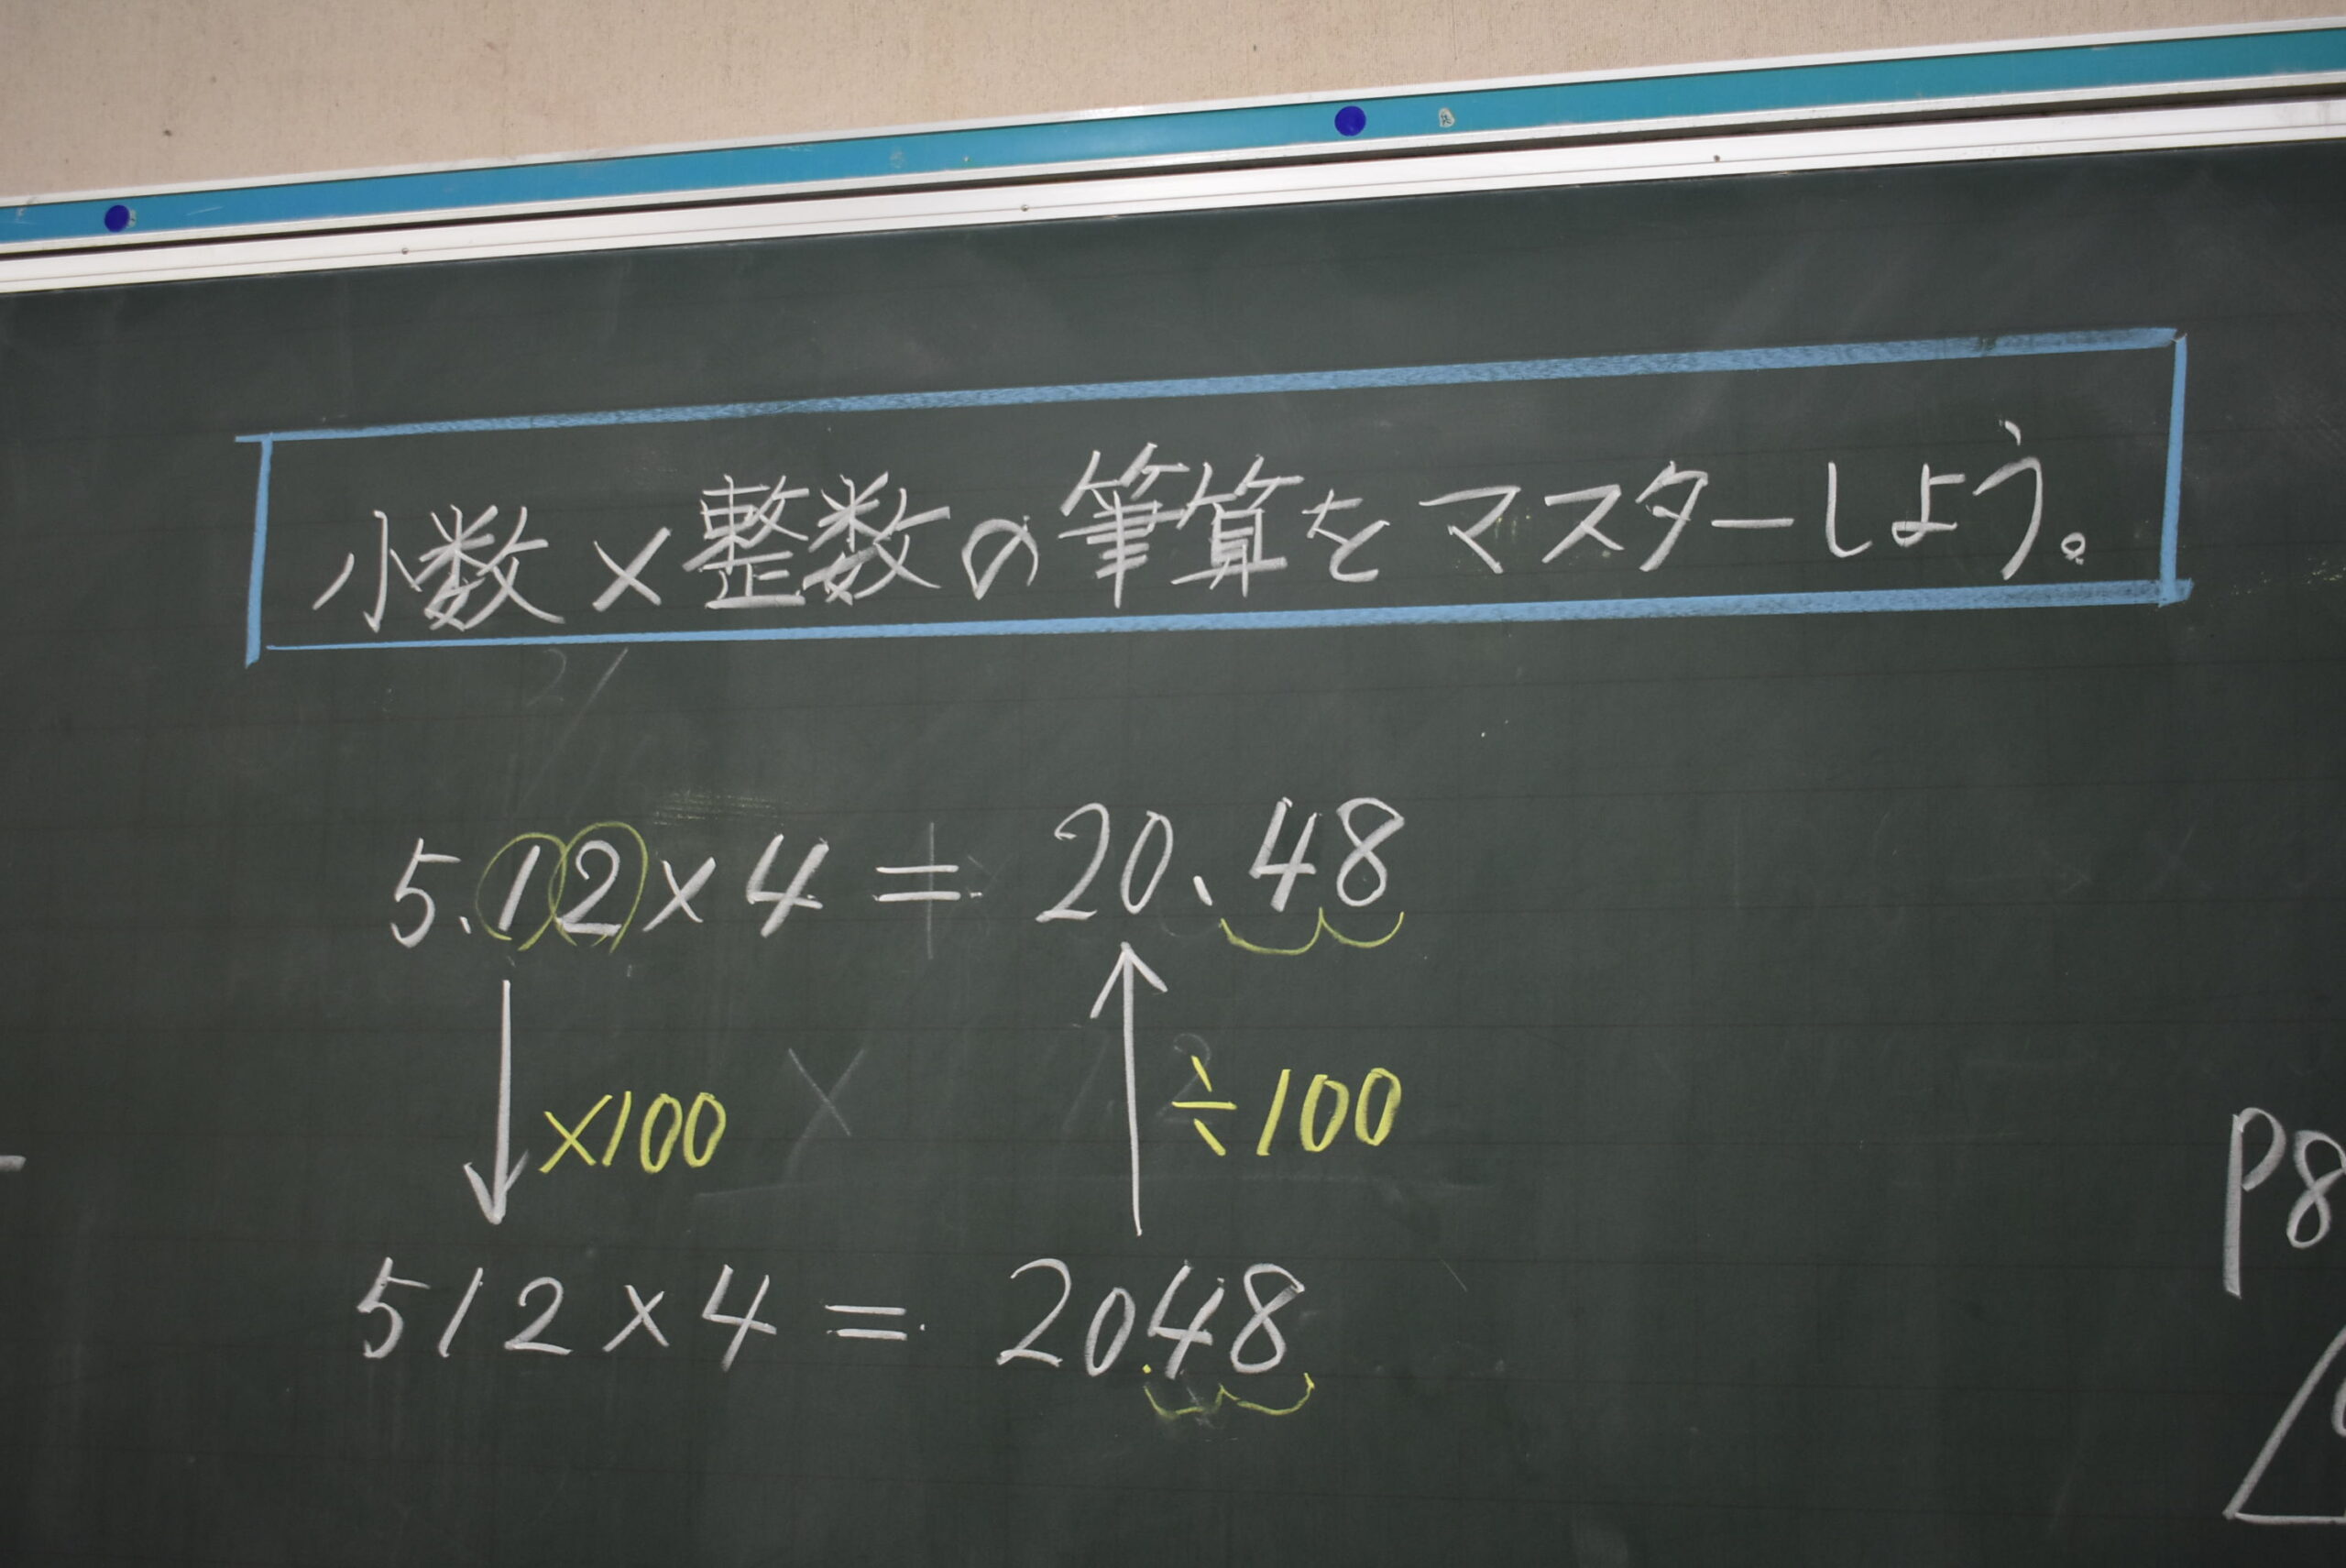 小数×整数の筆算をマスターしよう。
5.12×4=20.48
×100
÷100
512×4=2048
P8